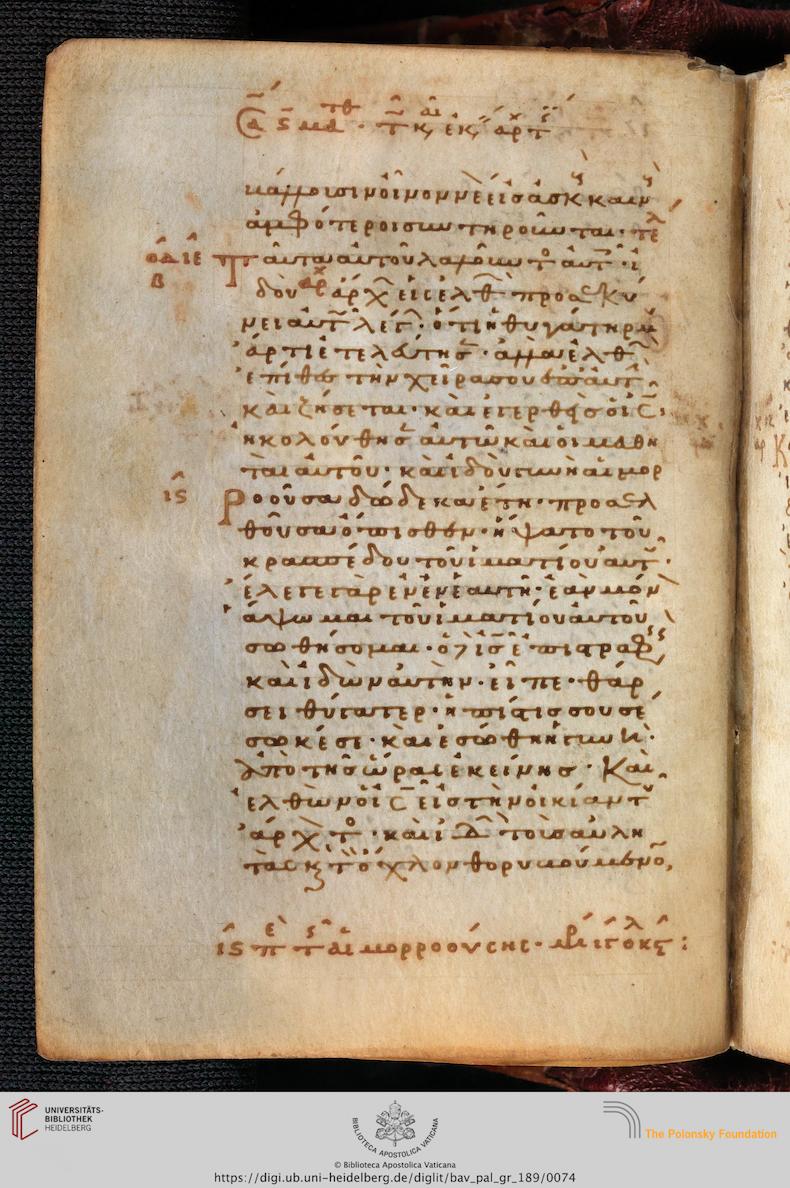 κάλλουσιν οἶνον νέον εἰς ἀσκ καιν
ἀμφότεροι συντηροῦνται· τελ
ταῦτα αὐτοῦ λαλοῦντ αὐτ· ἰ
δοὺ ἄρχ εἰσελθ προσεκύ
νει αὐτ λέγ· ὅτι ἡ θυγάτηρ μ
ἄρτι ἐτελεύτησ· ἀλλὰ ἐλθ
ἐπίθες τὴν χεῖρα σου ἐπ αὐτ
καὶ ζήσεται· καὶ ἐγερθεὶς ὁ ις
ἠκολούθησ αὐτῶ καὶ οἱ μαθη
ταὶ αὐτοῦ· καὶ ἰδοὺ γυνὴ αἱμορ
ροοῦσα δώδεκα ἔτη· προσελ
θοῦσα ὄπισθεν· ἥψατο τοῦ
κρασπέδου τοῦ ἱματίου αὐτ·
ἔλεγε γὰρ ἐν ἑαυτῆ· ἐὰν μόν
ἅψωμαι τοῦ ἱματίου αὐτοῦ
σωθήσομαι· ὁ δὲ ις ἐπιστραφεὶς
καὶ ἰδὼν αὐτὴν· εἶπε· θάρ
σει θύγατερ· ἡ πίστις σου σέ
σωκέ σε· καὶ ἐσώθη ἡ γυνὴ·
ἀπὸ τῆς ὥρας ἐκείνης· Καὶ
ἐλθὼν ὁ ις εἰς τὴν οἰκίαν τ
ἄρχτο· καὶ ἰδ τοὺς αὐλη
τὰς κ τ ὄχλον θορυβούμενο
ις π τ αἱμορροούσης·
UNIVERSITÄTS-
BIBLIOTHEK
HEIDELBERG
BIBLIOTECA APOSTOLICA VATICANA
The Polonsky Foundation
© Biblioteca Apostolica Vaticana
https://digi.ub.uni-heidelberg.de/diglit/bav_pal_gr_189/0074